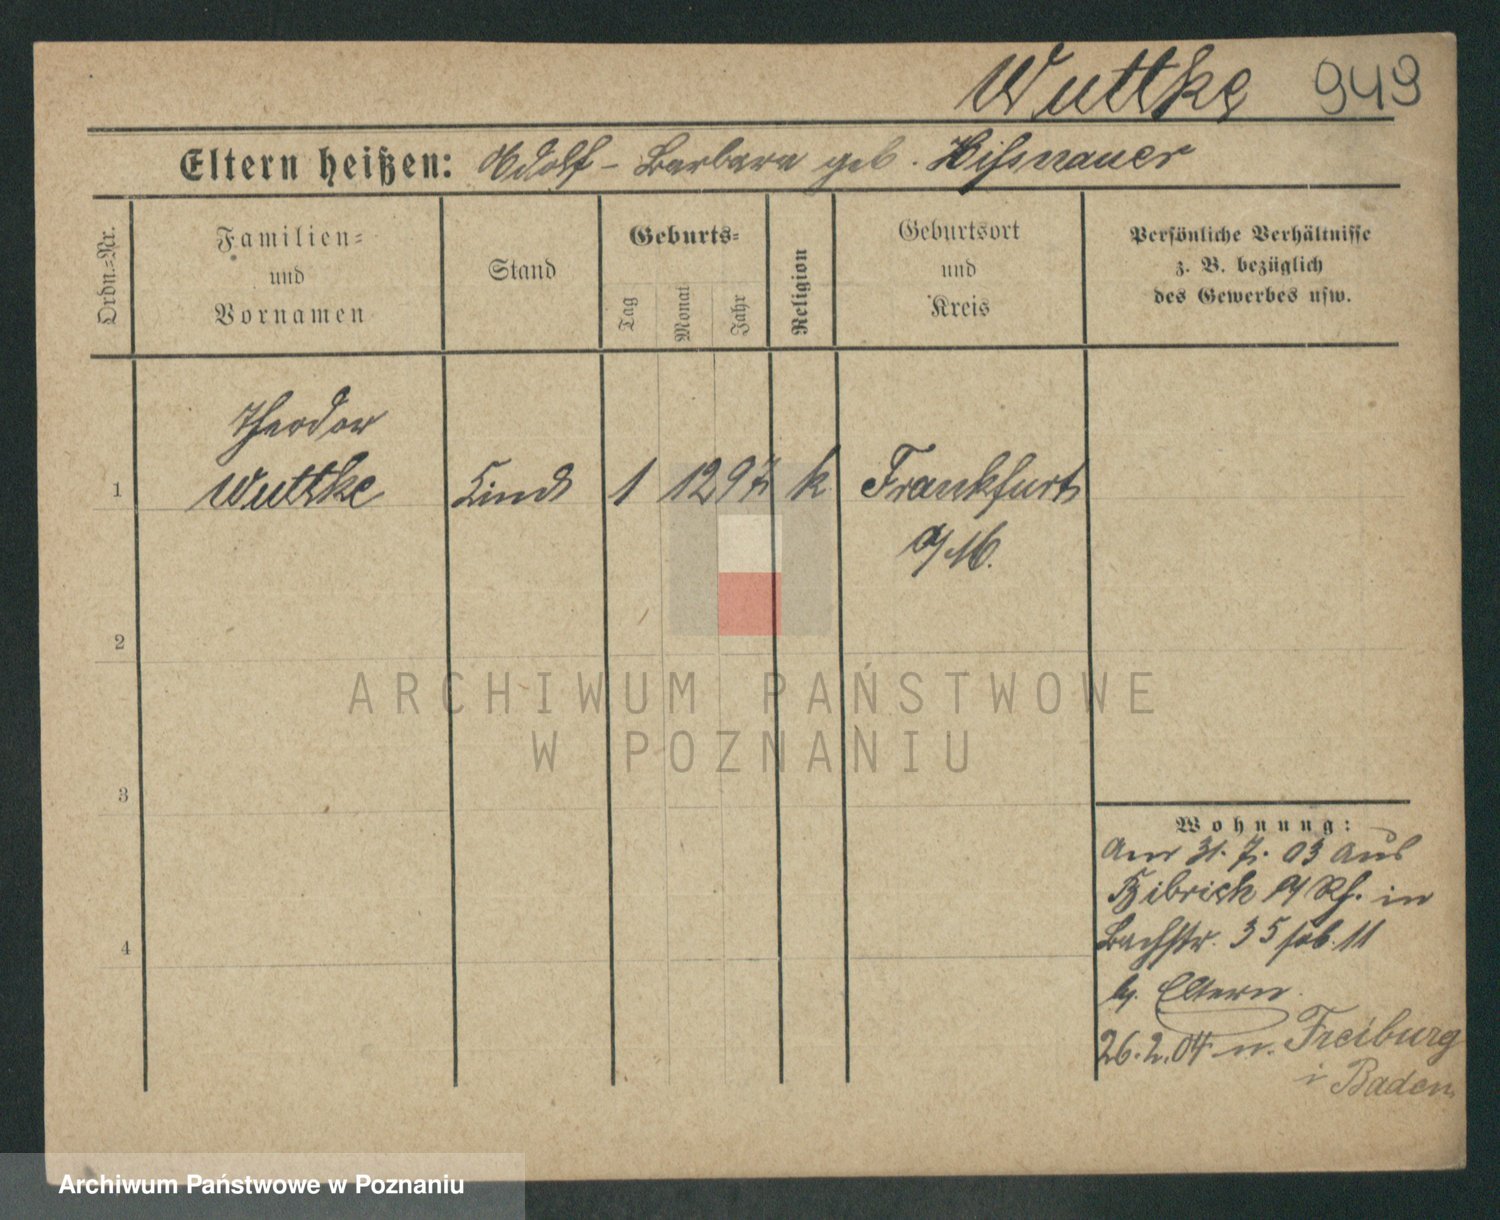 Wuttke 949
Eltern heißen: Adolf - Barbara geb. Hißnauer
Ordn.=Nr.
Familien=
und
Vornamen
Stand
Geburts=
Tag
Monat
Jahr
Religion
Geburtsort
und
Kreis
Persönliche Verhältnisse
z. B. bezüglich
des Gewerbes usw.
Theodor
1 Wuttke Kind 1 12 97 k Frankfurt
a/M.
2
3
4
Wohnung:
Am 31. 7. 03 aus
Bibrich a/Rh. in
Bachstr. 35
b. Eltern.
26.2.04 n. Freiburg
i Baden
ARCHIWUM PAŃSTWOWE
W POZNANIU
Archiwum Państwowe w Poznaniu